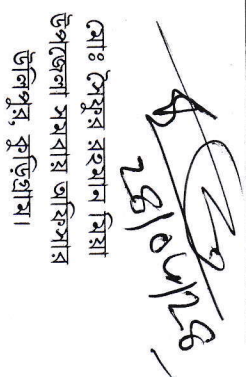 মোঃ সৈফুর রহমান মিয়া
উপজেলা সমবায় অফিসার
উলিপুর, কুড়িগ্রাম।